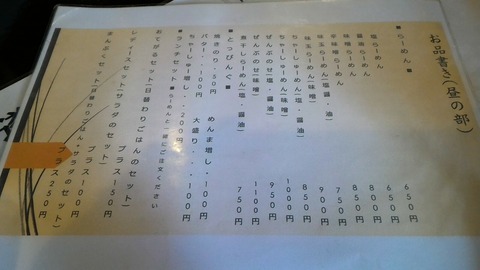 お品書き(昼の部)
■らーめん■
塩らーめん 650円
醤油らーめん 650円
味噌らーめん 800円
辛味噌らーめん 850円
味玉らーめん(塩・醤油) 750円
味玉らーめん(味噌) 900円
ちゃーしゅーめん(塩・醤油) 850円
ちゃーしゅーめん(味噌) 1000円
ぜんぶのせ(塩・醤油) 950円
ぜんぶのせ(味噌) 1100円
煮干しらーめん(塩・醤油) 750円
■とっぴんぐ■
焼きのり・50円 めんま増し・100円
バター・・100円 大盛り・・・100円
ちゃーしゅー増し・・200円
■ランチセット■らーめんと一緒にご注文ください
おてがるセット(日替わりごはんのセット) プラス150円
レディースセット(サラダのセット) プラス100円
まんぷくセット(日替わりごはん+サラダのセット) プラス250円